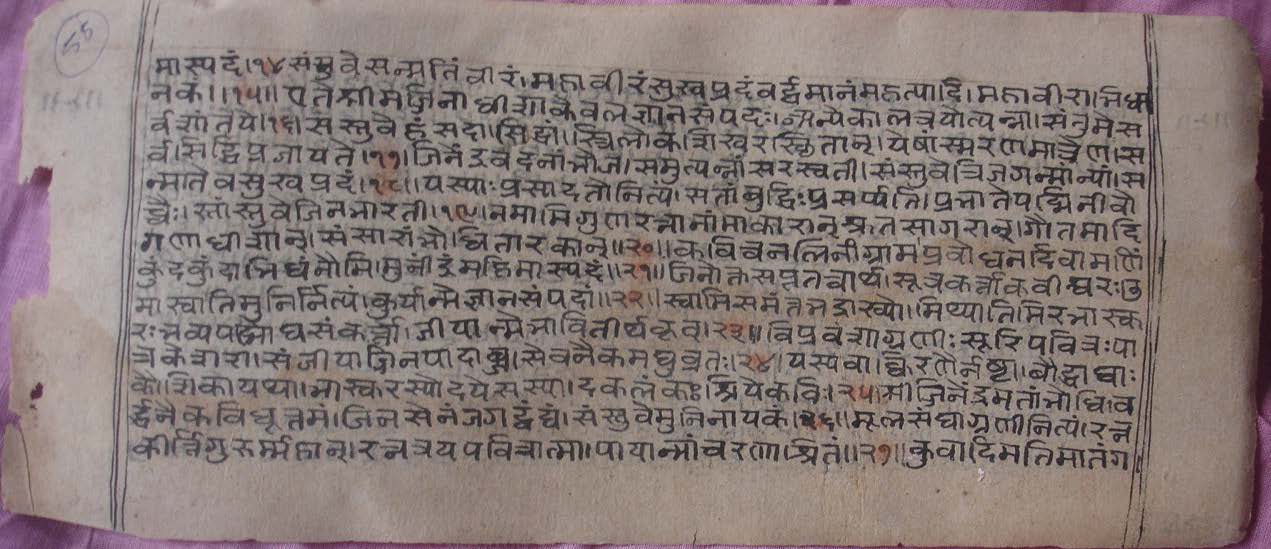 ५५
मास्पदं।१४ संस्तुवे सन्मतिं वीरं।महावीरं सुखप्रदं वर्द्धमानं महत्यादि।महावीराभिधा
नकं।।१५।। एते श्रीमज्जिनाधीशाः केवलज्ञानसंपदः।अन्ये कालत्रयोत्पन्ना।संतु मे स
र्वशांतये।१६।संस्तुवेहं सदा।सिद्धा।स्त्रिलोकशिखरस्थितान्।येषां स्मरणमात्रेण।स
र्वसिद्धिः प्रजायते।१७।जिनेंद्रवदनांभोज।समुत्पन्नां सरस्वती।संस्तुवे त्रिजगन्मान्यां।स
न्मातेव सुखप्रदं।१८।यस्याः प्रसादतो नित्यं।सतां बुद्धिः प्रसर्प्पति।प्रभाते पद्मिनीवो
च्चैः।स्तां स्तुवे जिनभारती।१९।नमामि गुणरत्नानामाकारान् श्रुतसागरान्।गौतमादि
गणाधीशान्।संसारांभोधितारकान्।।२०।।कविवनलिनीग्राम प्रबोधनदिवामणिं
कुंदकुंदाभिधं नौमि।मुनींद्रं महिमास्पदं।।२१।।जिनोक्तसप्ततत्वार्थ।सूत्रकर्त्ता कवीश्वरः उ
मास्वातिमुनिर्नित्यं।कुर्यान्मे ज्ञानसंपदां।।२२।।स्वामिसमंतभद्राख्यो।मिथ्यातिमिरभास्क
रः भव्यपद्मौघसंकर्त्ता।जीयान्मे भावितीर्थकृत्।२३।।विप्रवंशाग्रणीः सूरि पवित्रः पा
त्रकेशरी।संजीयाज्जिनपादाब्ज।सेवनैकमधुव्रतः।२४।यस्य वाक्किरणैर्नष्टा।बौद्धौघाः
कौशिका यथा।भास्करस्योदये स स्या।दकलंकः श्रिये कविः।२५।श्रीजिनेंद्रमतांभोधि।व
र्द्धनैकविधूत्तमं।जिनसेनं जगद्वंद्यं।संस्तुवे मुनिनायकं।२६।।मूलसंघाग्रणीनित्यं।रत्न
कीर्त्तिगुरुर्म्महान्।रत्नत्रयपवित्रात्मा।पायान्मां चरणाश्रितं।।२७।।कुवादिमतिमातंग